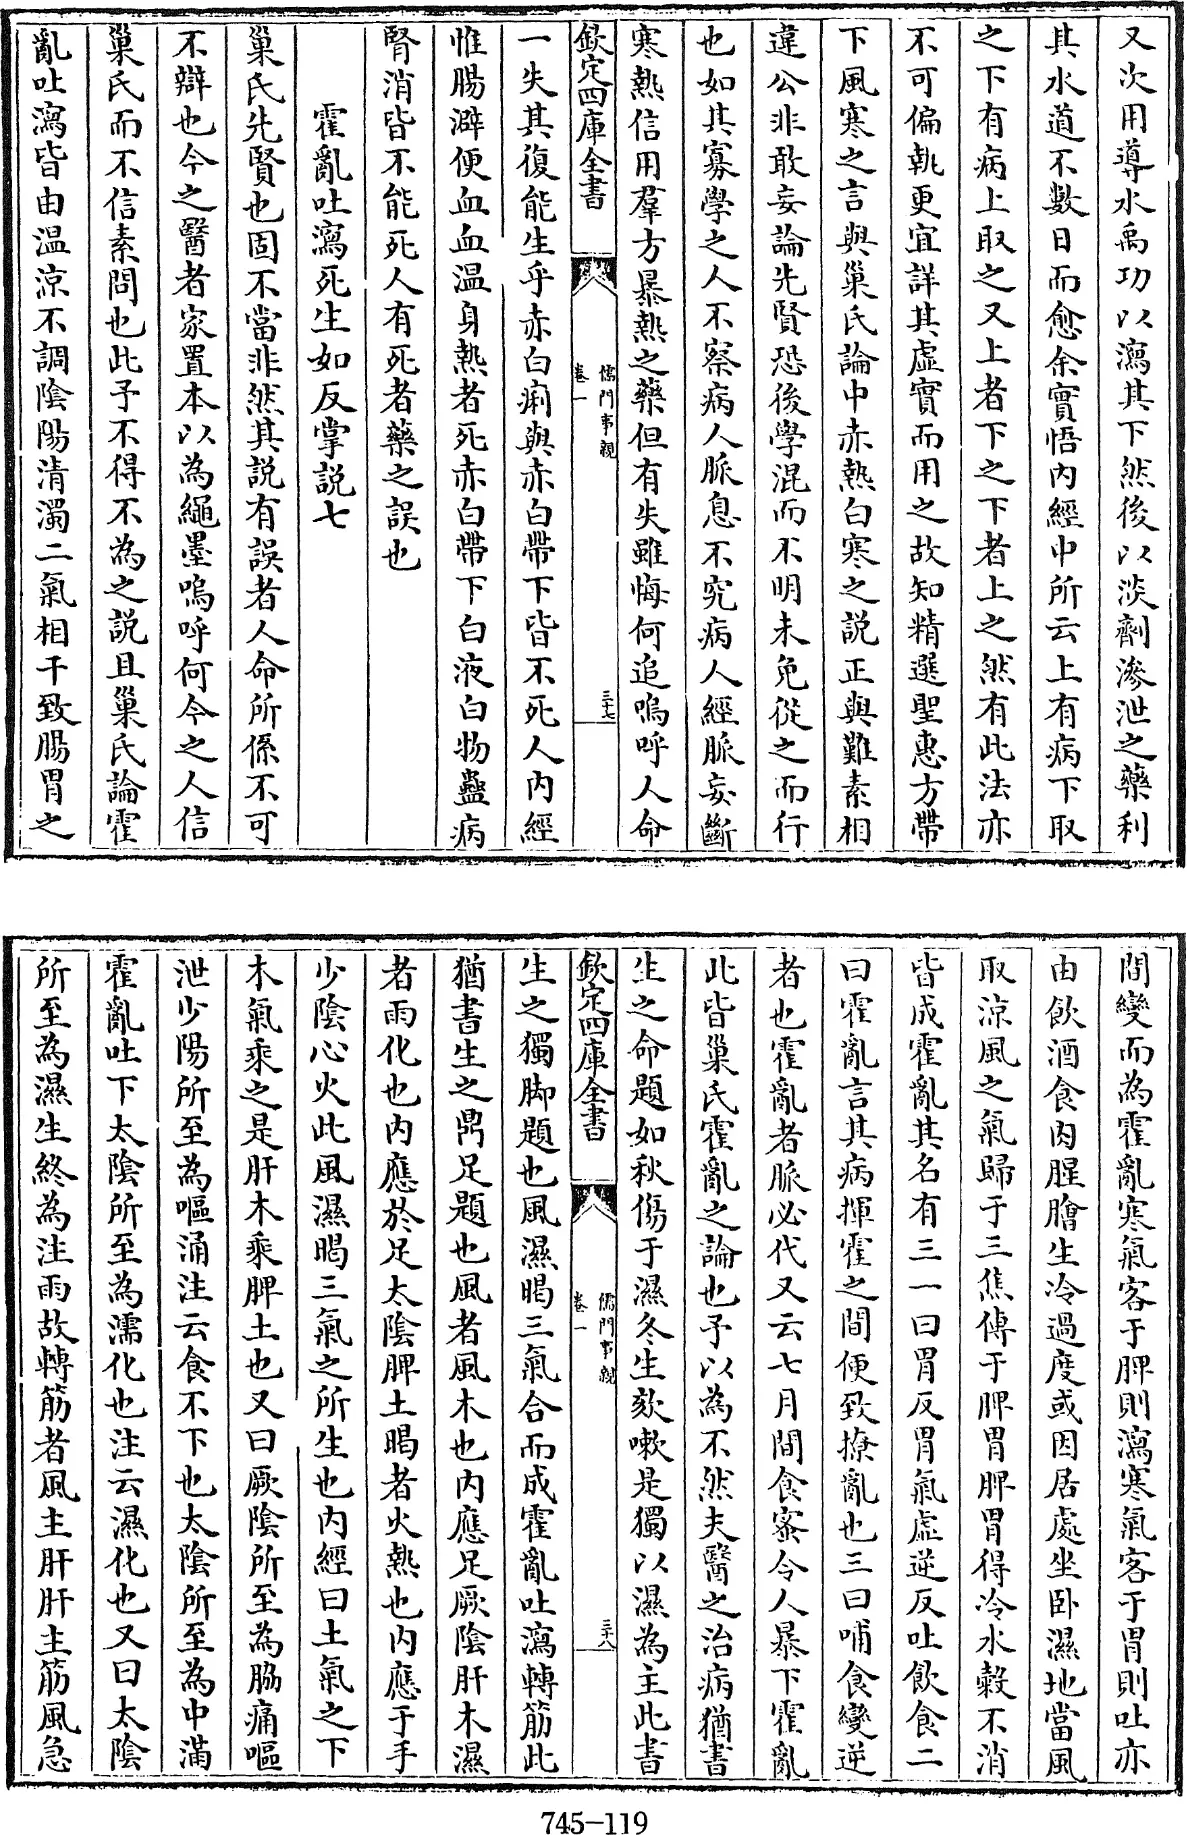 又次用導水禹功以瀉其下然後以淡劑滲泄之藥利
其水道不數日而愈余實悟内經中所云上有病下取
之下有病上取之又上者下之下者上之然有此法亦
不可偏執更宜詳其虛實而用之故知精選聖惠方帶
下風寒之言與巢氏論中赤熱白寒之説正與難素相
違公非敢妄論先賢恐後學混而不明未免從之而行
也如其寡學之人不察病人脈息不究病人經脈妄斷
寒熱信用羣方暴熱之藥但有失雖悔何追嗚呼人命
欽定四庫全書
儒門事親
卷一
三十七
一失其復能生乎赤白痢與赤白帶下皆不死人内經
惟腸澼便血血温身熱者死赤白帶下白液白物蠱病
腎消皆不能死人有死者藥之誤也
霍亂吐瀉死生如反掌説七
巢氏先賢也固不當非然其説有誤者人命所係不可
不辯也今之醫者家置本以為繩墨嗚呼何今之人信
巢氏而不信素問也此予不得不為之説且巢氏論霍
亂吐瀉皆由温涼不調陰陽清濁二氣相干致腸胃之
間變而為霍亂寒氣客于脾則瀉寒氣客于胃則吐亦
由飲酒食肉腥膾生冷過度或因居處坐卧濕地當風
取涼風之氣歸于三焦傳于脾胃脾胃得冷水穀不消
皆成霍亂其名有三一曰胃反胃氣虛逆反吐飲食二
曰霍亂言其病揮霍之間便致撩亂也三曰哺食變逆
者也霍亂者脈必代又云七月間食蜜令人暴下霍亂
此皆巢氏霍亂之論也予以為不然夫醫之治病猶書
生之命題如秋傷于濕冬生欬嗽是獨以濕為主此書
欽定四庫全書
儒門事親
卷一
三十八
生之獨脚題也風濕暍三氣合而成霍亂吐瀉轉筋此
猶書生之鼎足題也風者風木也内應足厥陰肝木濕
者雨化也内應於足太陰脾土暍者火熱也内應于手
少陰心火此風濕暍三氣之所生也内經曰土氣之下
木氣乘之是肝木乘脾土也又曰厥陰所至為脇痛嘔
泄少陽所至為嘔涌注云食不下也太陰所至為中滿
霍亂吐下太陰所至為濡化也注云濕化也又曰太陰
所至為濕生終為注雨故轉筋者風主肝肝主筋風急
745-119